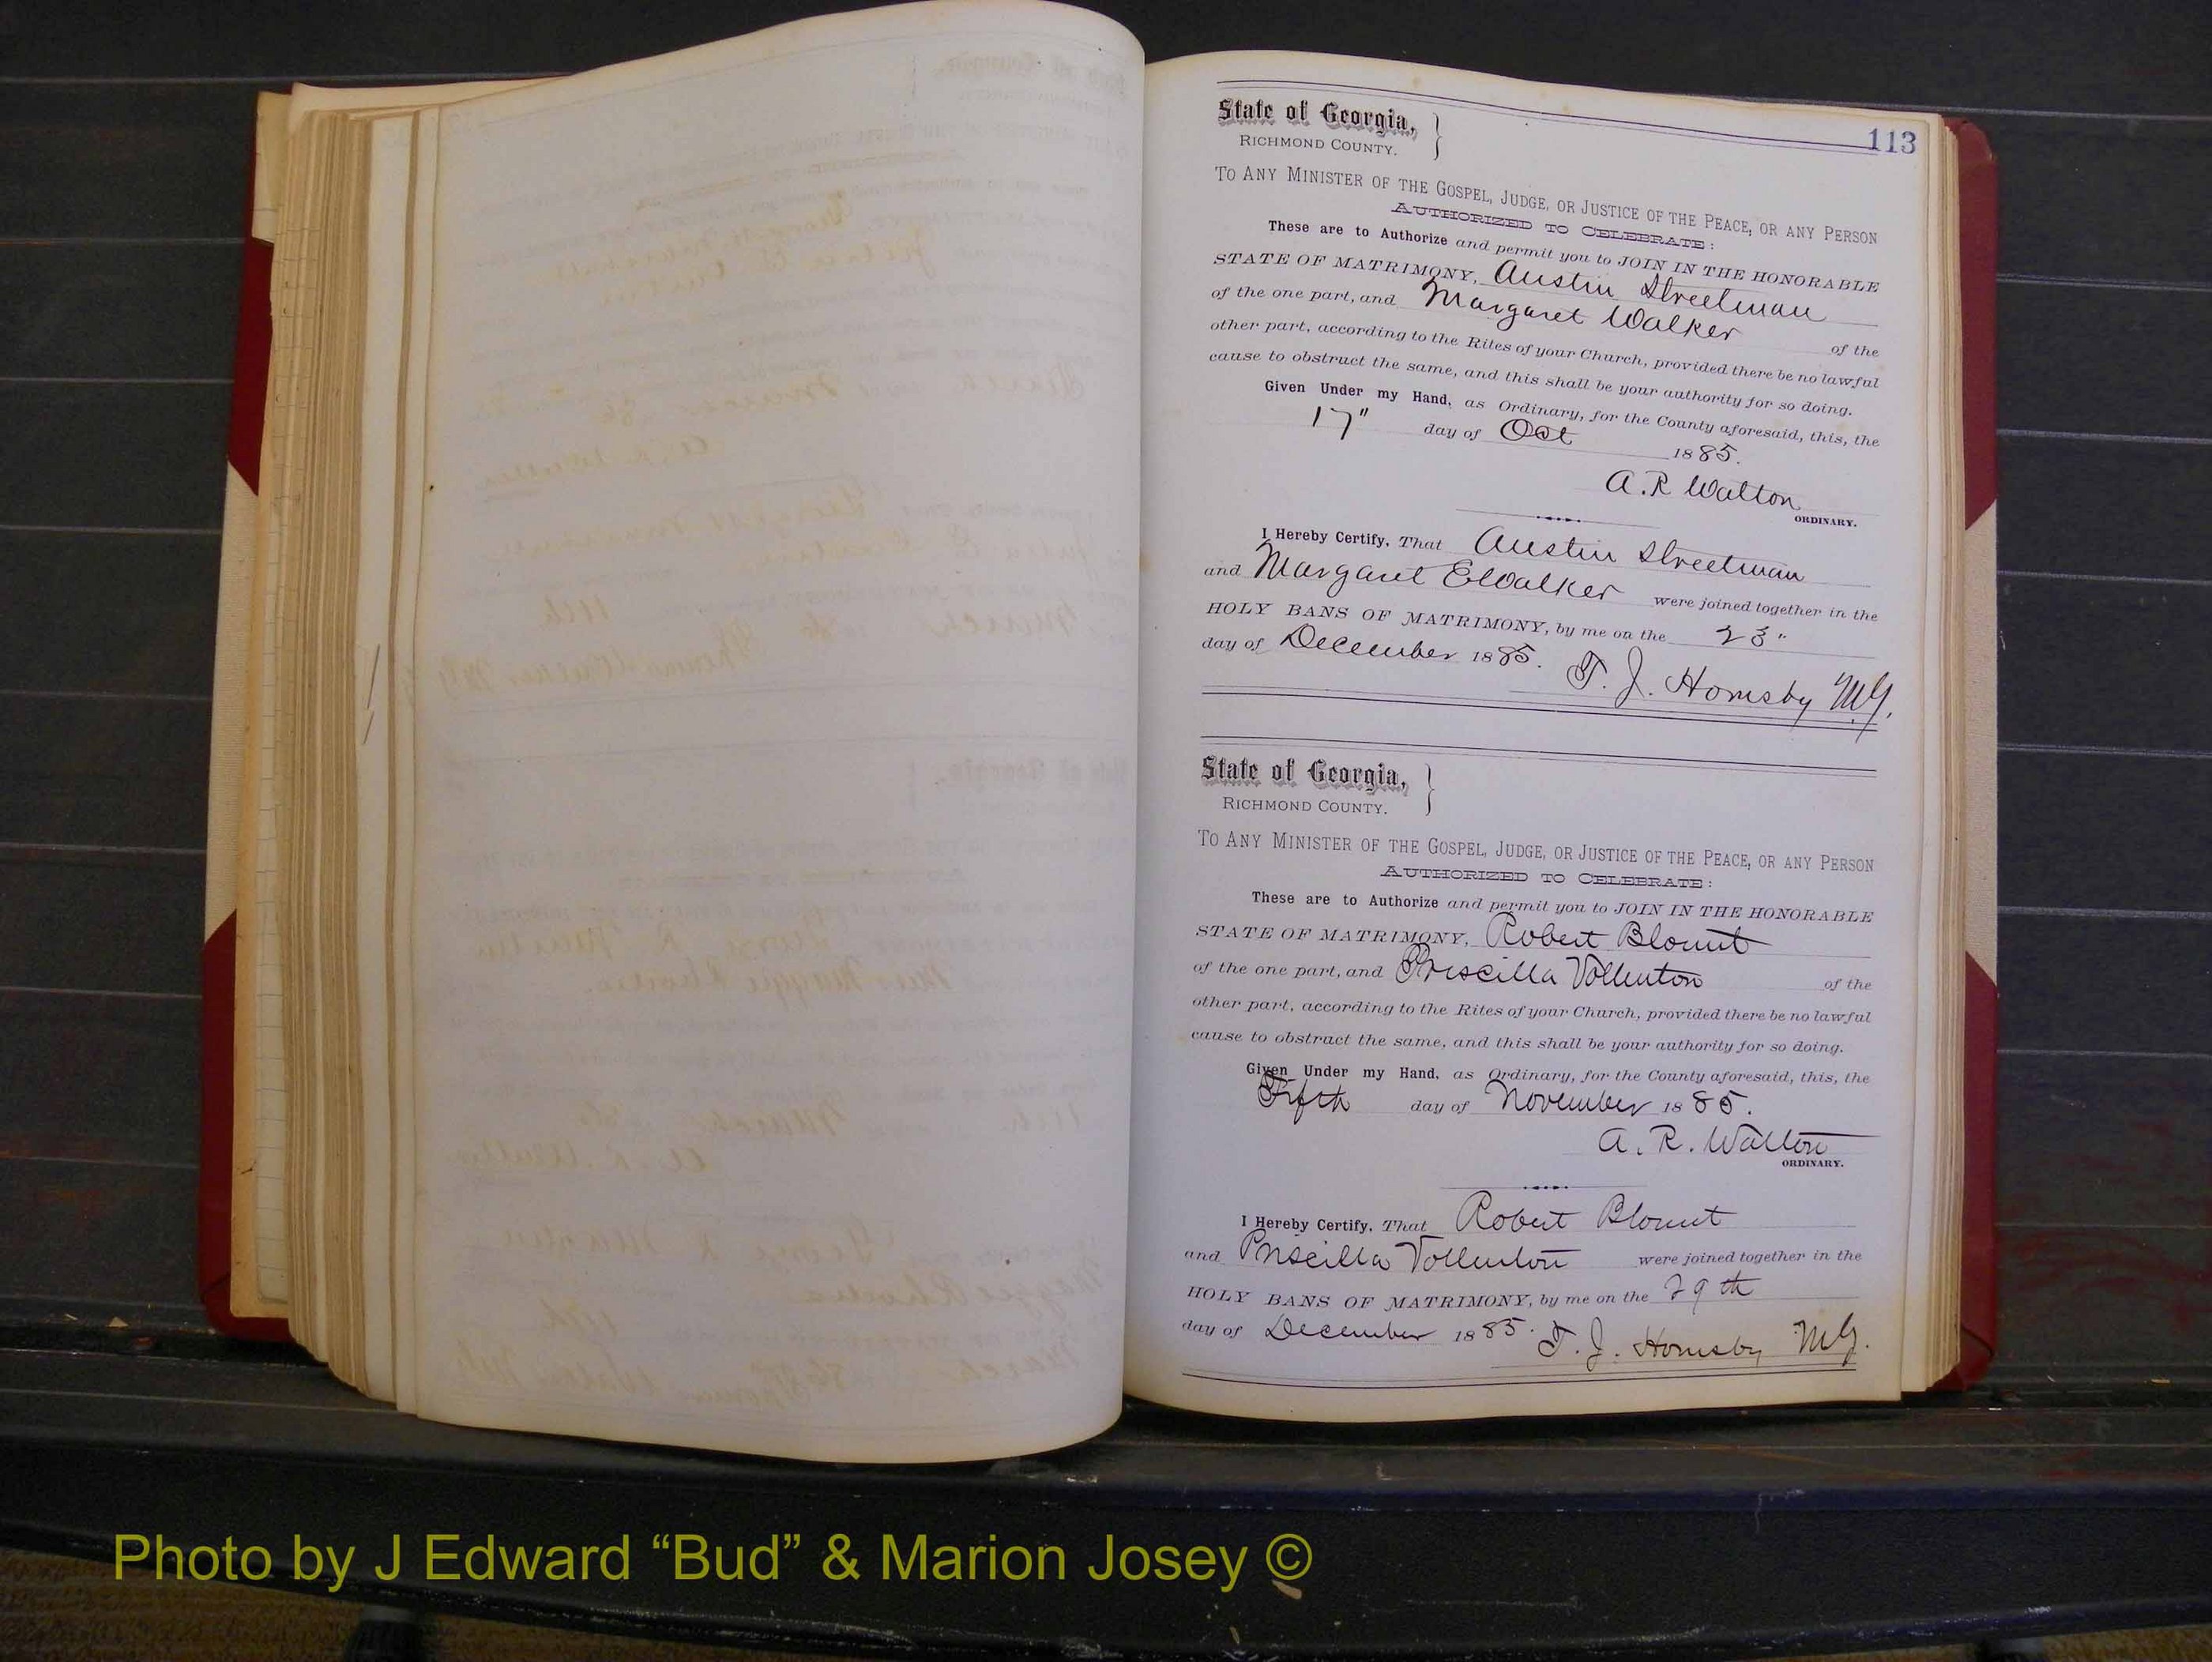 113
State of Georgia, }
RICHMOND COUNTY.
TO ANY MINISTER OF THE GOSPEL, JUDGE, OR JUSTICE OF THE PEACE, OR ANY PERSON
AUTHORIZED TO CELEBRATE:
These are to Authorize and permit you to JOIN IN THE HONORABLE
STATE OF MATRIMONY, Austin Streetman
of the one part, and Margaret Walker of the
other part, according to the Rites of your Church, provided there be no lawful
cause to obstruct the same, and this shall be your authority for so doing.
Given Under my Hand, as Ordinary, for the County aforesaid, this, the
17" day of Oct 1885.
A. R Walton
ORDINARY.
I Hereby Certify, That Austin Streetman
and Margaret E Walker were joined together in the
HOLY BANS OF MATRIMONY, by me on the 23"
day of December 1885. T. J. Hornsby M.G.
State of Georgia, }
RICHMOND COUNTY.
TO ANY MINISTER OF THE GOSPEL, JUDGE, OR JUSTICE OF THE PEACE, OR ANY PERSON
AUTHORIZED TO CELEBRATE:
These are to Authorize and permit you to JOIN IN THE HONORABLE
STATE OF MATRIMONY, Robert Blount
of the one part, and Priscilla Tollenton of the
other part, according to the Rites of your Church, provided there be no lawful
cause to obstruct the same, and this shall be your authority for so doing.
Given Under my Hand, as Ordinary, for the County aforesaid, this, the
Fifth day of November 1885.
A. R. Walton
ORDINARY.
I Hereby Certify, That Robert Blount
and Priscilla Tollenton were joined together in the
HOLY BANS OF MATRIMONY, by me on the 29th
day of December 1885. T. J. Hornsby MG.
Photo by J Edward “Bud” & Marion Josey ©